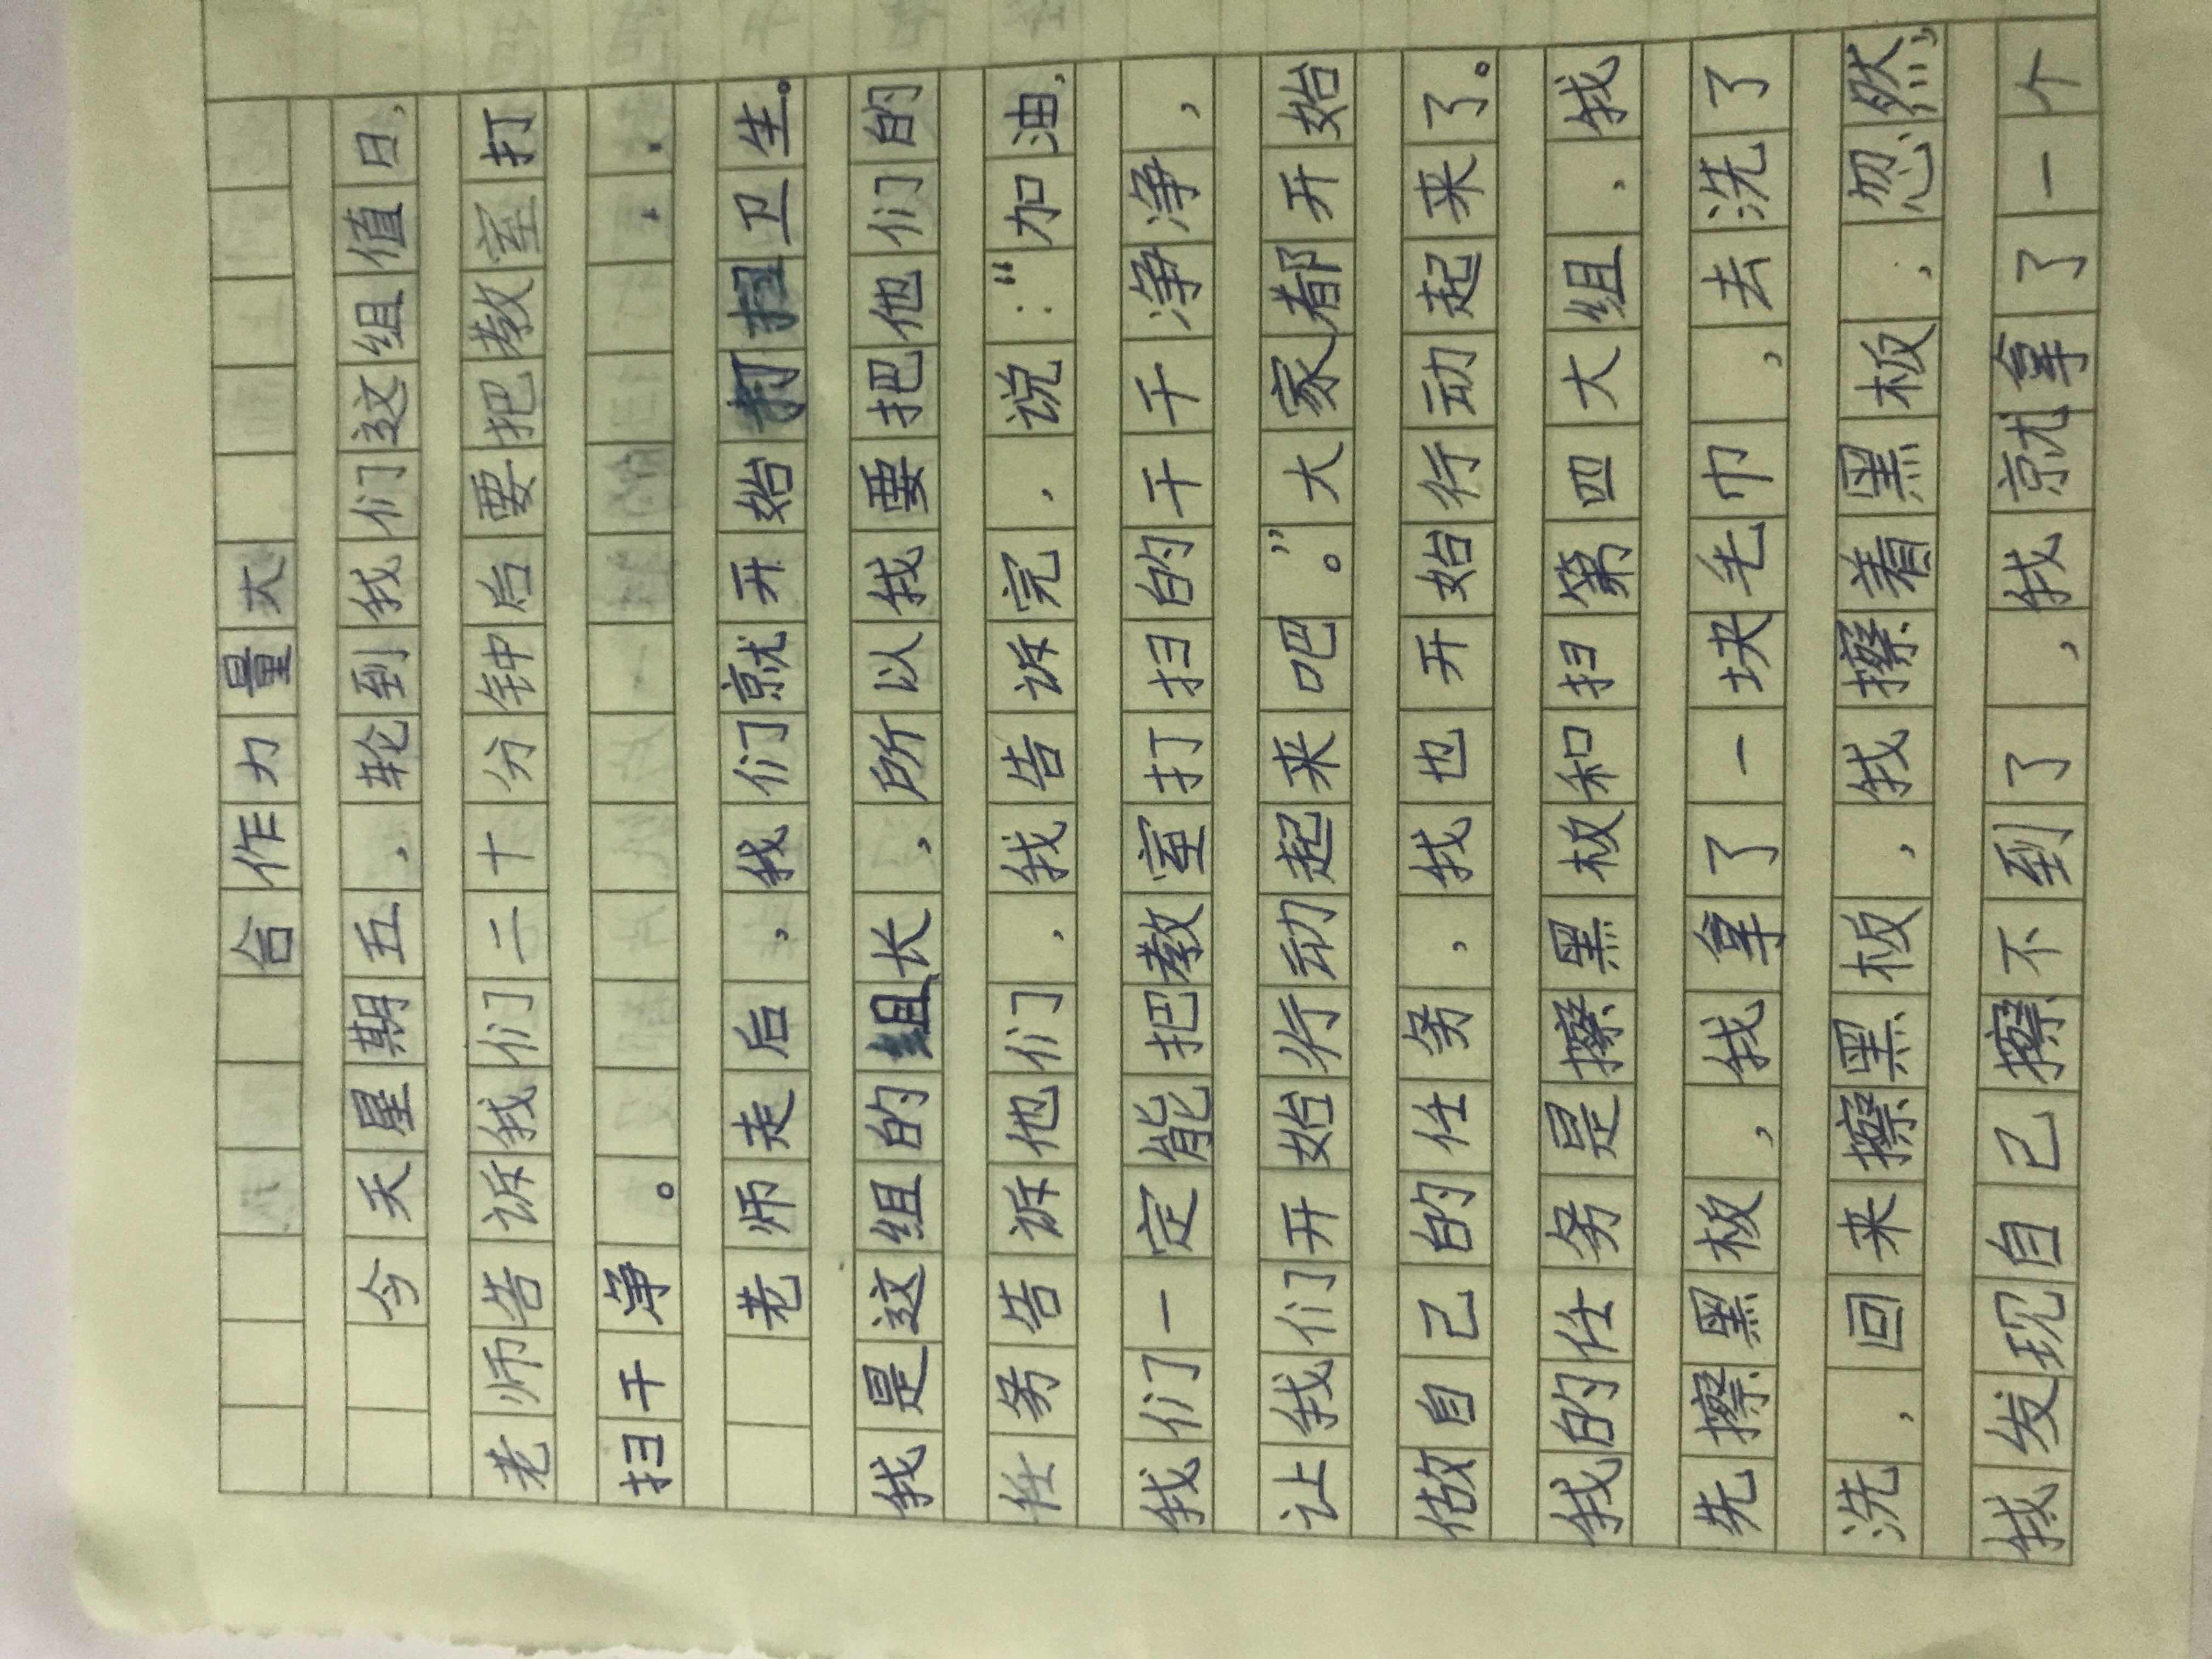 合作力量大
今天星期五，轮到我们这组值日，
老师告诉我们二十分钟后要把教室打
扫干净。
老师走后，我们就开始打扫卫生。
我是这组的组长，所以我要把他们的
任务告诉他们，我告诉完，说：“加油，
我们一定能把教室打扫的干干净净，
让我们开始行动起来吧。”大家都开始
做自己的任务，我也开始行动起来了。
我的任务是擦黑板和扫第四大组，我
先擦黑板，我拿了一块毛巾，去洗了
洗，回来擦黑板，我擦着黑板，忽然，
我发现自己擦不到了，我就拿了一个